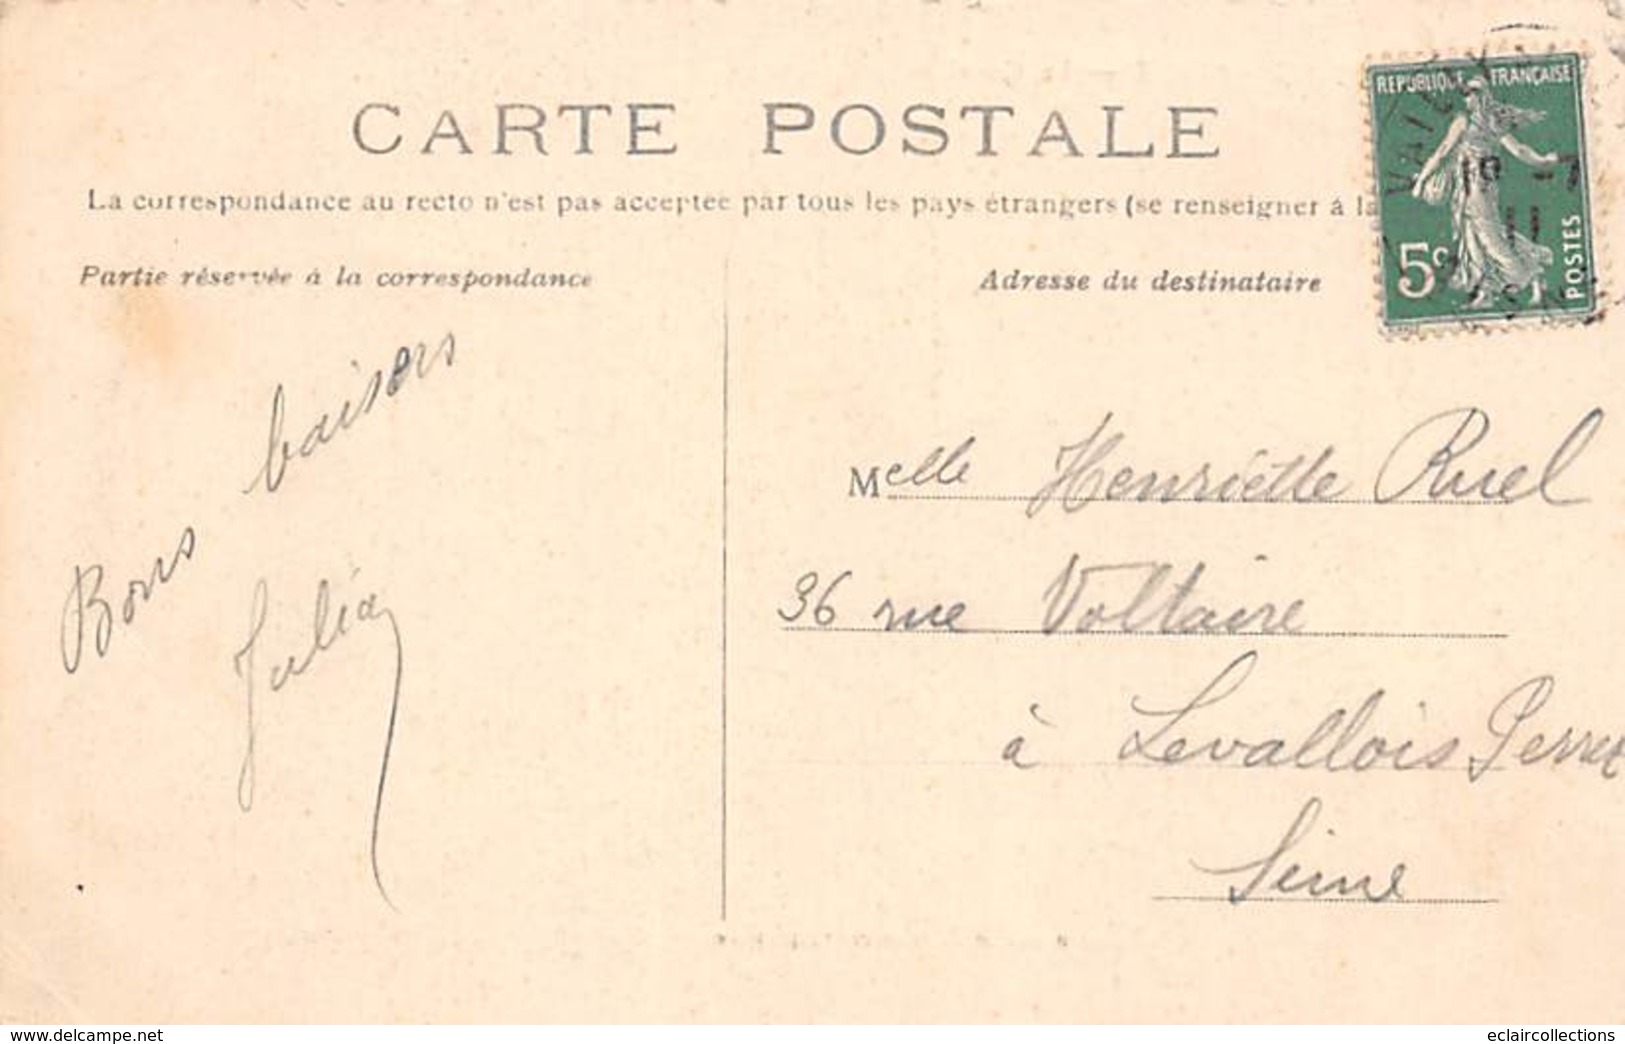 CARTE POSTALE
La correspondance au recto n'est pas acceptée par tous les pays étrangers (se renseigner à la
Partie réservée à la correspondance
Adresse du destinataire
REPUBLIQUE FRANÇAISE
5c
POSTES
18 -7
11
Bons baisers
Julia
Melle Henriette Ruel
36 rue Voltaire
à Levallois Perret
Seine
www.delcampe.net
eclaircollections